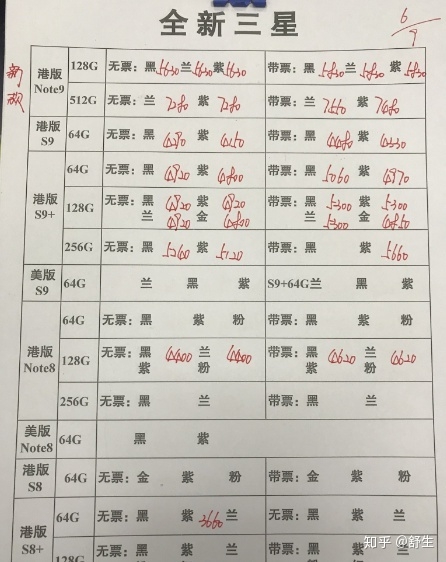 全新三星
6/9
新款
港版Note9 128G 无票：黑5630 兰5630 紫5630 带票：黑5830 兰5830 紫5830
512G 无票：兰 7280 紫 7280 带票：兰 7550 紫 7480
港版S9 64G 无票：黑 4270 紫 4250 带票：黑 4480 紫 4430
港版S9+ 64G 无票：黑 4920 紫 4800 带票：黑 5060 紫 4970
128G 无票：黑 4920 紫 4920 带票：黑 5300 紫 5300
兰 4920 金 4800 兰 5300 金 4850
256G 无票：黑 5260 紫 5120 带票：黑 紫 5660
美版S9 64G 兰 黑 紫 S9+64G兰 黑 紫
港版Note8 64G 无票：黑 紫 粉 带票：黑 紫 粉
128G 无票：黑 4400 兰 4400 带票：黑 4620 兰 4620
紫 粉 紫 粉
256G 无票：黑 兰 带票：黑 兰
美版Note8 64G 黑 紫
港版S8 64G 无票：金 紫 粉 带票：金 紫 粉
港版S8+ 64G 无票：黑 紫 3660 兰 无票：黑 紫 兰
128G 无票：黑 紫 兰 带票：黑 紫 兰
知乎 @舒生